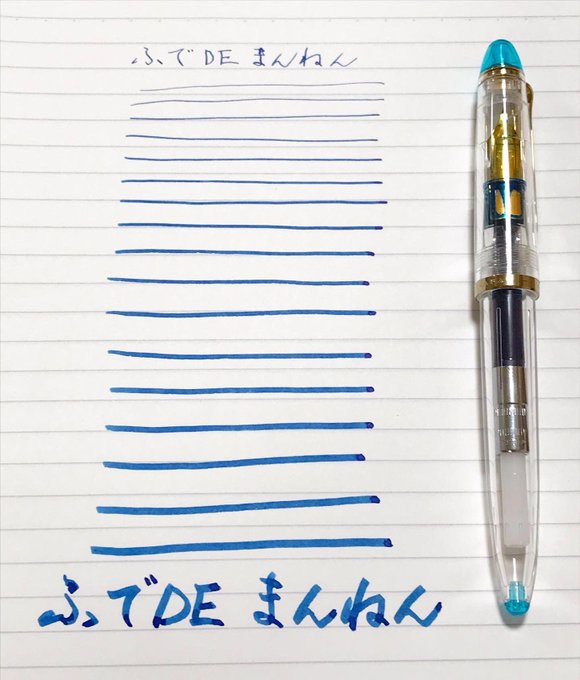 ふでDE まんねん
ふでDE まんねん